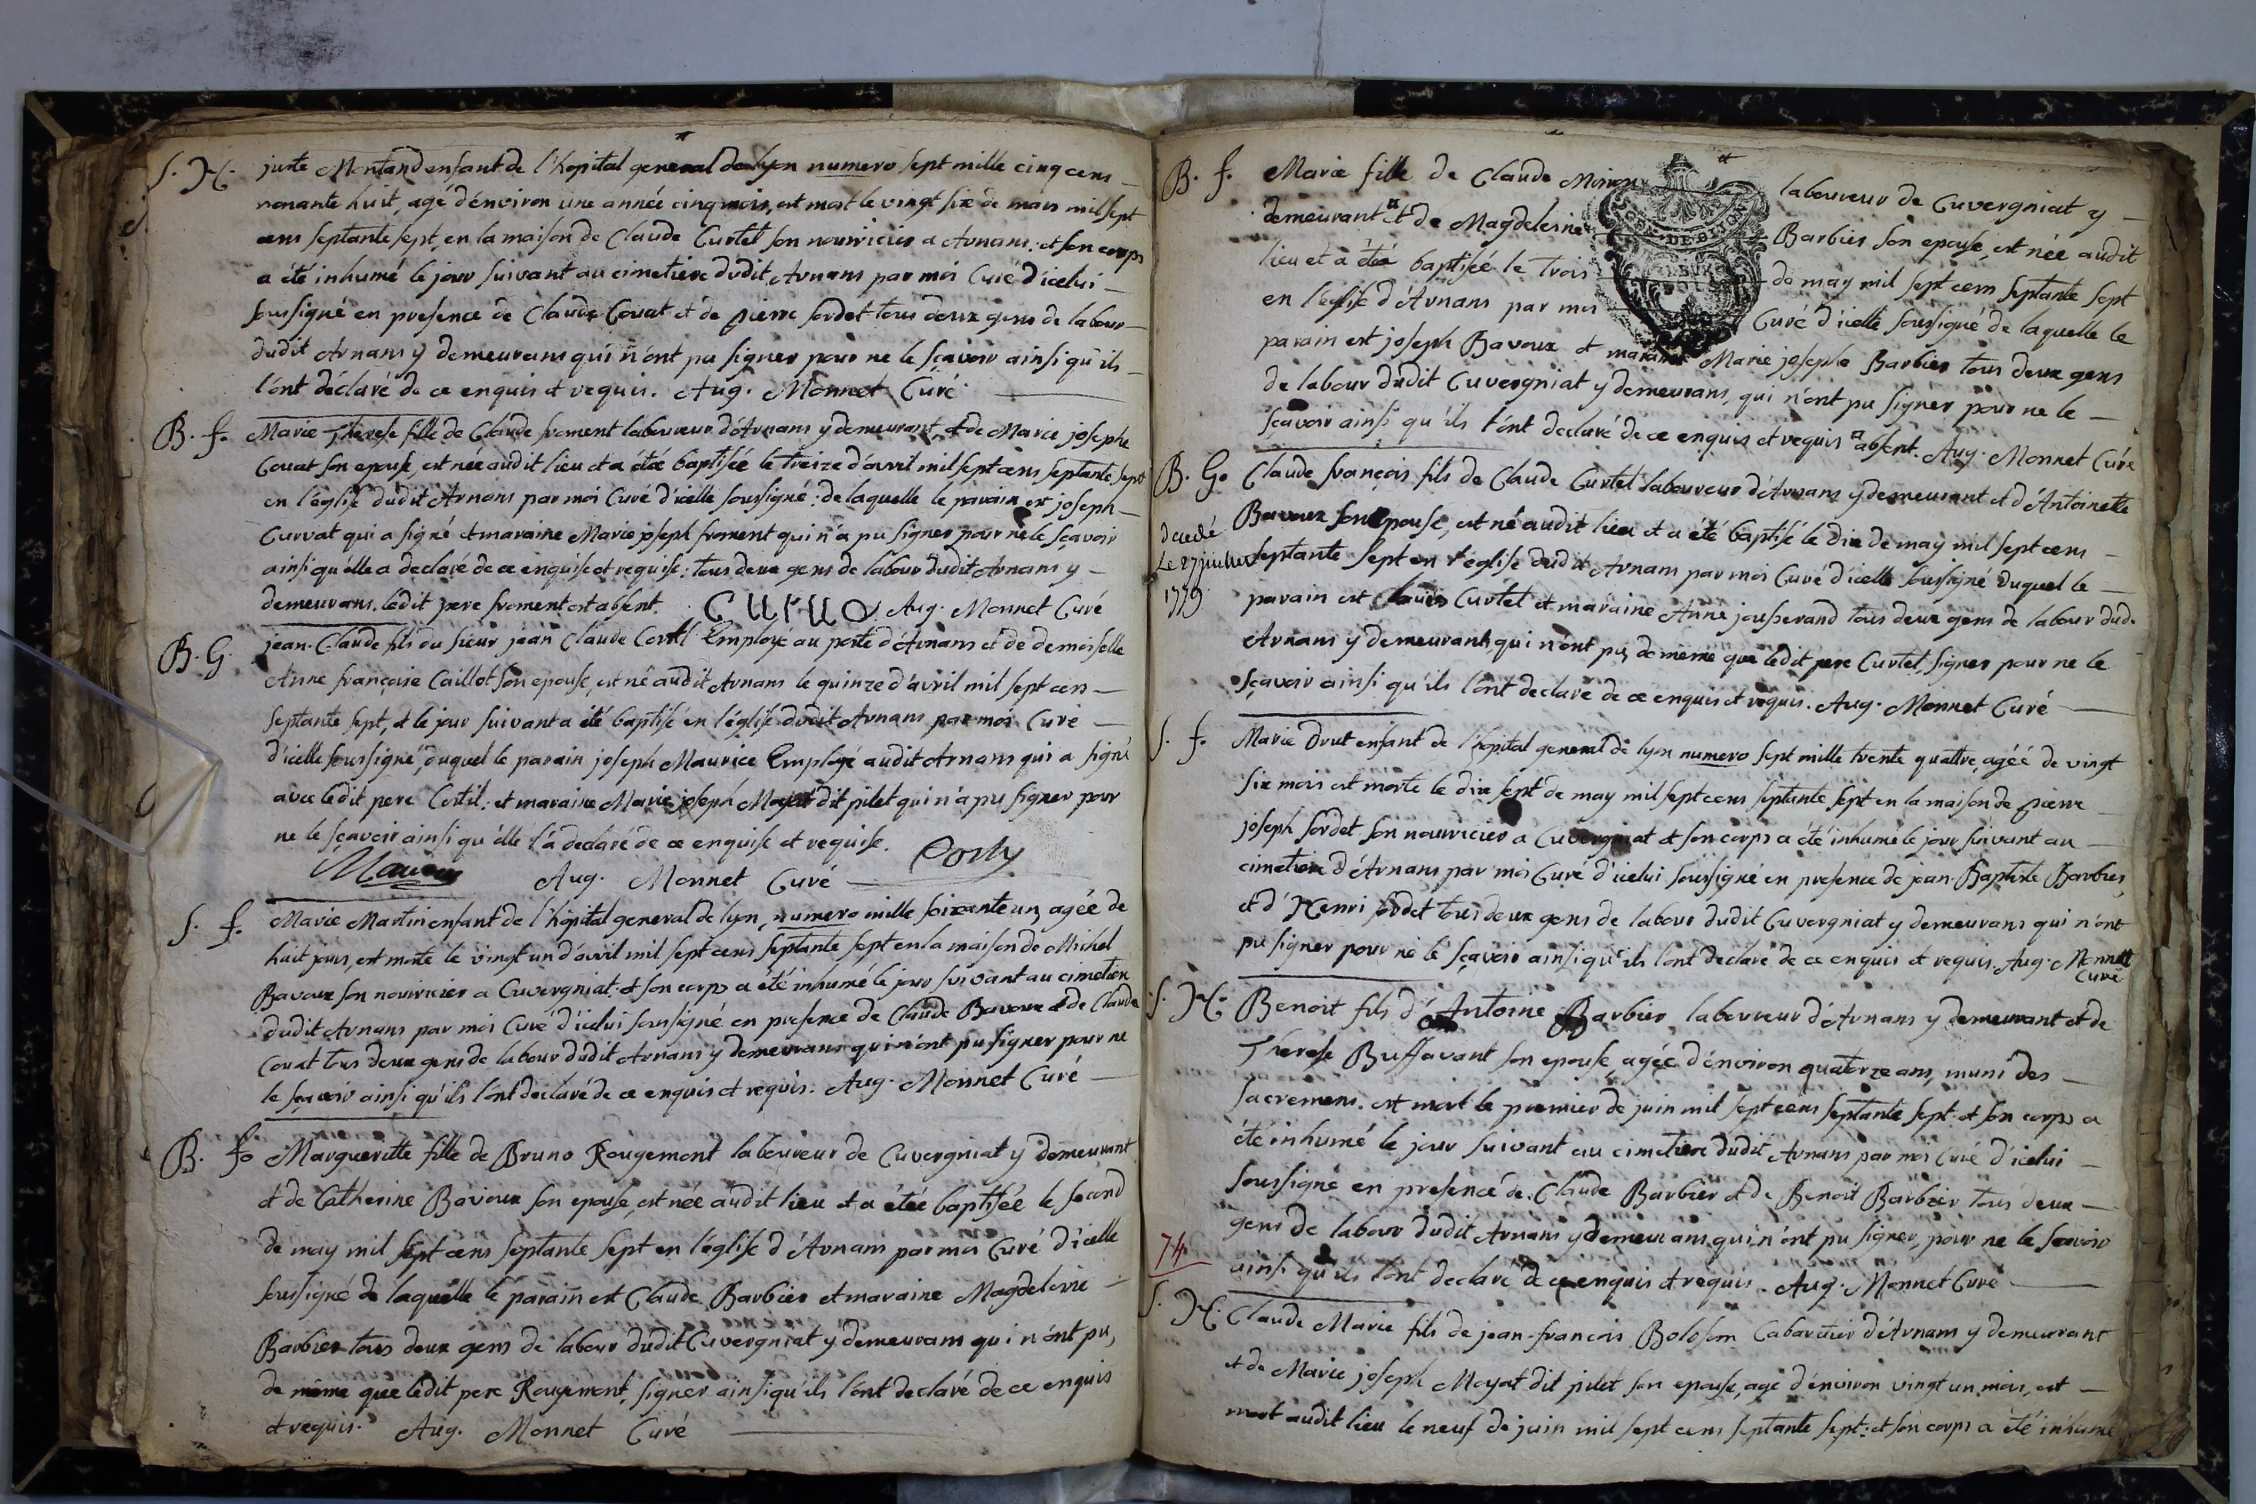 S. H. juste Montand enfant de l'hopital general de lyon numero sept mille cinq cens
nonante huit, agé d'énviron une année cinq mois, est mort le vingt six de mars mil sept
cens septante sept, en la maison de Claude Curtet son nourricier a Arnans: et son corps
a été inhumé le jour suivant au cimetiere dudit Arnans par moi Curé d'icelui
soussigné en presence de Claude Couat et de pierre sordet tous deux gens de labour
dudit Arnans y demeurans qui n'ont pu signer pour ne le sçavoir ainsi qu'ils
l'ont déclaré de ce enquis et requis. Aug. Monnet Curé
B. f. Marie Therese fille de Claude froment laboureur d'Arnans y demeurant, et de Marie josephe
Couat son epouse, est née audit lieu et a étée baptisée le treize d'avril mil sept cens septante sept
en l'église dudit Arnans par moi Curé d'icelle soussigné: de laquelle le parain est joseph
Curvat qui a signé et maraine Marie joseph froment qui n'a pu signer pour ne le sçavoir
ainsi qu'elle a declaré de ce enquise et requise: tous deux gens de labour dudit Arnans y
demeurans. ledit pere froment est absent. Aug. Monnet Curé
B. G. jean-Claude fils du sieur jean Claude Cortil Employé au poste d'Arnans et de demoiselle
Anne françoise Caillot son epouse, est né audit Arnans le quinze d'avril mil sept cens
septante sept, et le jour suivant a été baptisé en l'église dudit Arnans par moi Curé
d'icelle soussigné, duquel le parain joseph Maurice Employé audit Arnans qui a signé
avec ledit pere Cortil: et maraine Marie joseph Moyat dit pilet qui n'a pu signer pour
ne le sçavoir ainsi qu'elle l'a declaré de ce enquise et requise.
Aug. Monnet Curé
S. f. Marie Martin enfant de l'hôpital general de lyon, numero mille soixante un, agée de
huit jours, est morte le vingt un d'avril mil sept cens septante sept en la maison de Michel
Bavoux son nourricier a Cuvergniat: et son corps a été inhumé le jour suivant au cimetiere
dudit Arnans par moi Curé d'icelui soussigné en presence de Claude Bavoux et de Claude
Couat tous deux gens de labour dudit Arnans y demeurans qui n'ont pu signer pour ne
le sçavoir ainsi qu'ils l'ont declaré de ce enquis et requis. Aug. Monnet Curé
B. f. Margueritte fille de Bruno Rougemont laboureur de Cuvergniat y demeurant
et de Catherine Bavoux son epouse, est née audit lieu et a étée baptisée le second
de may mil sept cens septante sept en l'église d'Arnans par moi Curé d'icelle
soussigné de laquelle le parain est Claude Barbier et maraine Magdeleine
Barbier tous deux gens de labour dudit Cuvergniat y demeurans qui n'ont pu,
de même que ledit pere Rougemont, signer ainsi qu'ils l'ont declaré de ce enquis
et requis. Aug. Monnet Curé
B. f. Marie fille de Claude laboureur de Cuvergniat y
demeurant et de Magdeleine Barbier son epouse, est née audit
lieu et a étée baptisée le trois de may mil sept cens septante sept
en l'église d'Arnans par moi Curé d'icelle soussigné de laquelle le
parain est joseph Bavoux et maraine Marie josephe Barbier tous deux gens
de labour dudit Cuvergniat y demeurans, qui n'ont pu signer pour ne le
sçavoir ainsi qu'ils l'ont declaré de ce enquis et requis absent. Aug. Monnet Curé
B. G. Claude françois fils de Claude Curtet laboureur d'Arnans y demeurant et d'Antoinette
Bavoux son epouse, est né audit lieu et a été baptisé le dix de may mil sept cens
decedé
Le 27 juillet
1779.
septante sept en l'église dudit Arnans par moi Curé d'icelle soussigné duquel le
parain est Curtet et maraine Anne jousserand tous deux gens de labour dud.
Arnans y demeurants qui n'ont pu, de meme que ledit pere Curtet, signer pour ne le
sçavoir ainsi qu'ils l'ont declaré de ce enquis et requis. Aug. Monnet Curé
S. f. Marie Drut enfant de l'hopital general de lyon numero sept mille trente quattre, agéé de vingt
six mois est morte le dix sept de may mil sept cens septante sept en la maison de pierre
joseph sordet son nourricier a Cuvergniat et son corps a été inhumé le jour suivant au
cimetiere d'Arnans par moi Curé d'icelui soussigné en presence de jean-Baptiste Barbier,
et d'Henri sordet tous deux gens de labour dudit Cuvergniat y demeurans qui n'ont
pu signer pour ne le sçavoir ainsi qu'ils l'ont declaré de ce enquis et requis. Aug. Monnet
Curé
S. H. Benoit fils d'Antoine Barbier laboureur d'Arnans y demeurant et de
Therese Buffavant son epouse, agée d'énviron quatorze ans, muni des
sacremens. est mort le premier de juin mil sept cens septante sept. et son corps a
été inhumé le jour suivant au cimetiere dudit Arnans par moi Curé d'icelui
soussigné en presence de Claude Barbier et de Benoit Barbier tous deux
gens de labour dudit Arnans y demeurans qui n'ont pu signer, pour ne le sçavoir
ainsi qu'ils l'ont declaré de ce enquis et requis. Aug. Monnet Curé
74
S. H. Claude Marie fils de jean-francois Boloson Cabaretier d'Arnans y demeurant
et de Marie joseph Moyat dit pilet son epouse, agé d'énviron vingt un mois, est
mort audit lieu le neuf de juin mil sept cens septante sept: et son corps a été inhumé